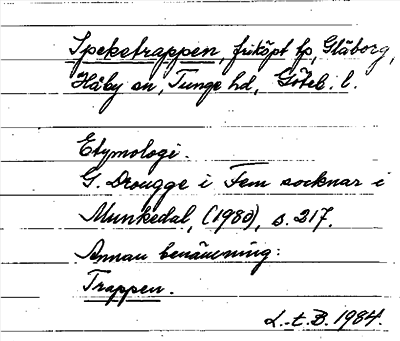 Speketrappen, friköpt tp, Glåborg,
Håby sn, Tunge hd, Göteb. l.
Etymologi.
G. Drougge i Fem socknar i
Munkedal, (1980), s. 217.
Annan benämning:
Trappen.
L.-t. B. 1984.